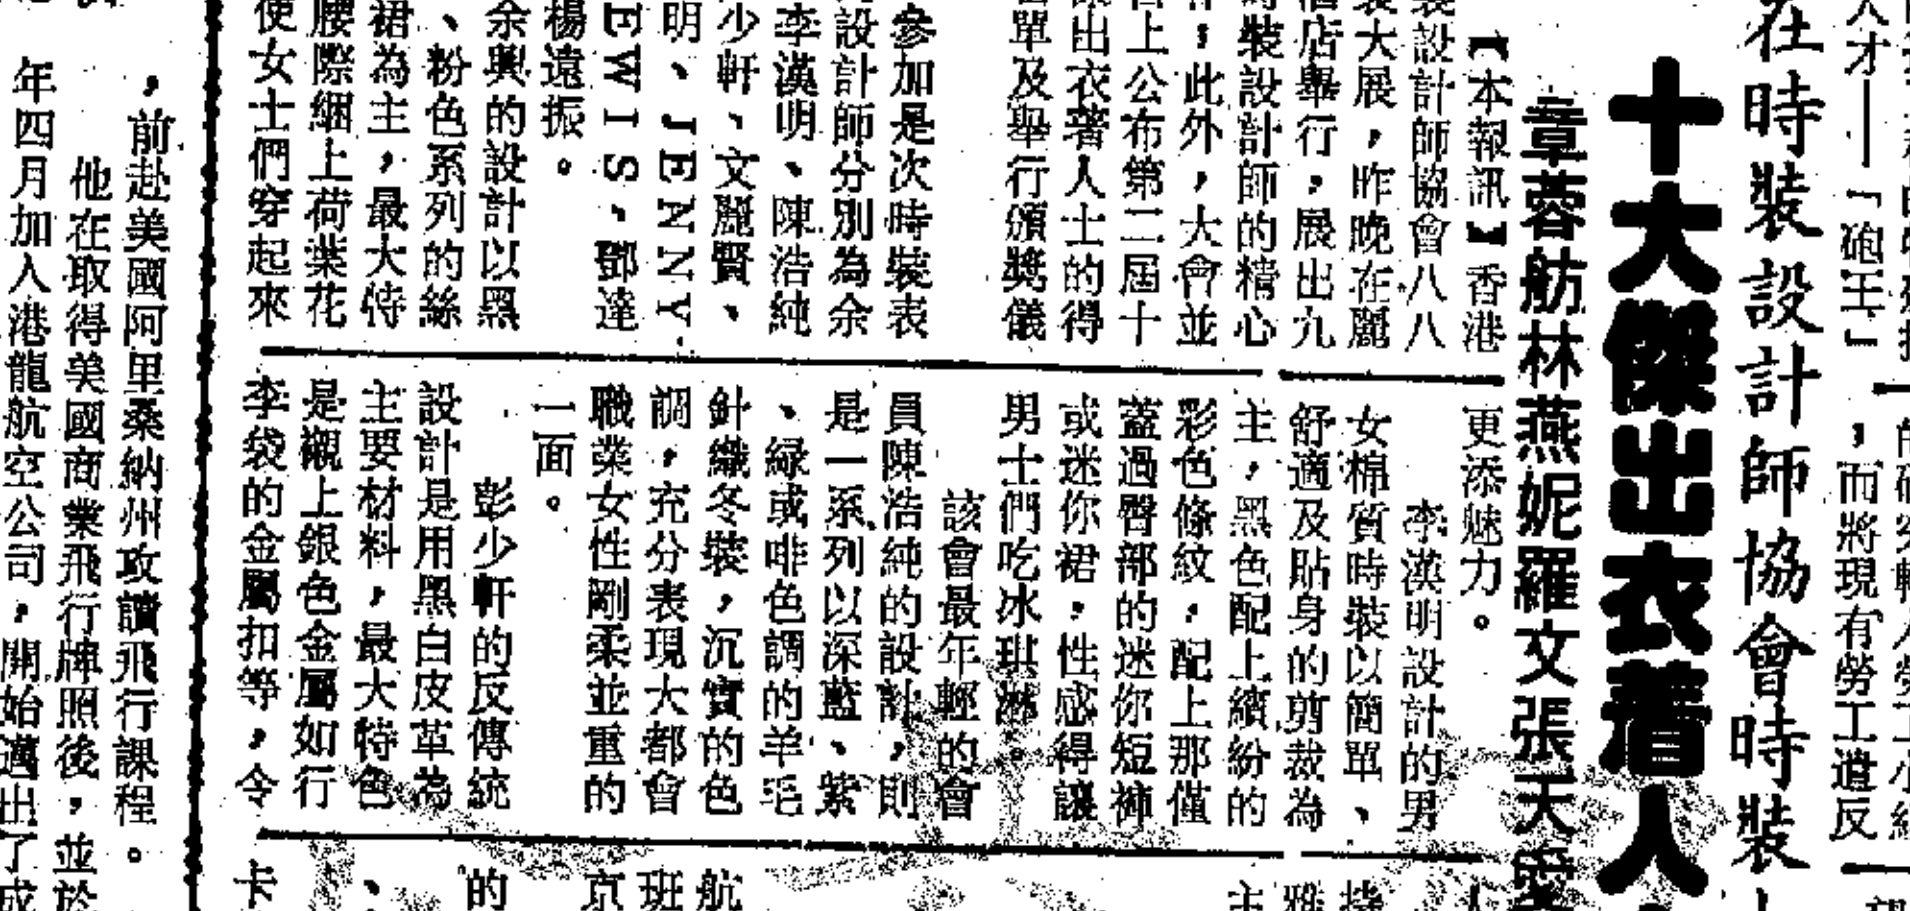 在時裝設計師協會時裝
十大傑出衣着人
章蓉舫林燕妮羅文張天愛
【本報訊】香港
裝設計師協會八八
裝大展，昨晚在麗
酒店舉行，展出九
時裝設計師的精心
，此外，大會並
上公布第二屆十
傑出衣著人士的得
單及舉行頒獎儀
參加是次時裝表
設計師分別為余
李漢明、陳浩純
少軒、文麗賢、
明、JENNY
EWIS，鄧達
楊遠振。
余興的設計以黑
、粉色系列的絲
裙為主，最大特
腰際綑上荷葉花
使女士們穿起來
更添魅力。
李漢明設計的男
女棉質時裝以簡單、
舒適及貼身的剪裁為
主，黑色配上繽紛的
彩色條紋，配上那僅
蓋過臀部的迷你短褲
或迷你裙，性感得讓
男士們吃冰琪淋。
該會最年輕的會
員陳浩純的設計，則
是一系列以深藍、紫
、綠或啡色調的羊毛
針織冬裝，沉實的色
調，充分表現大都會
職業女性剛柔並重的
一面。
彭少軒的反傳統
設計是用黑白皮革為
主要材料，最大特色
是襯上銀色金屬如行
李袋的金屬扣等，令
航
班
京
的
、
卡
人才——「砲王」
，而將現有勞工遣反
，前赴美國阿里桑納州攻讀飛行課程。
他在取得美國商業飛行牌照後，並於
年四月加入港龍航空公司，開始邁出了成